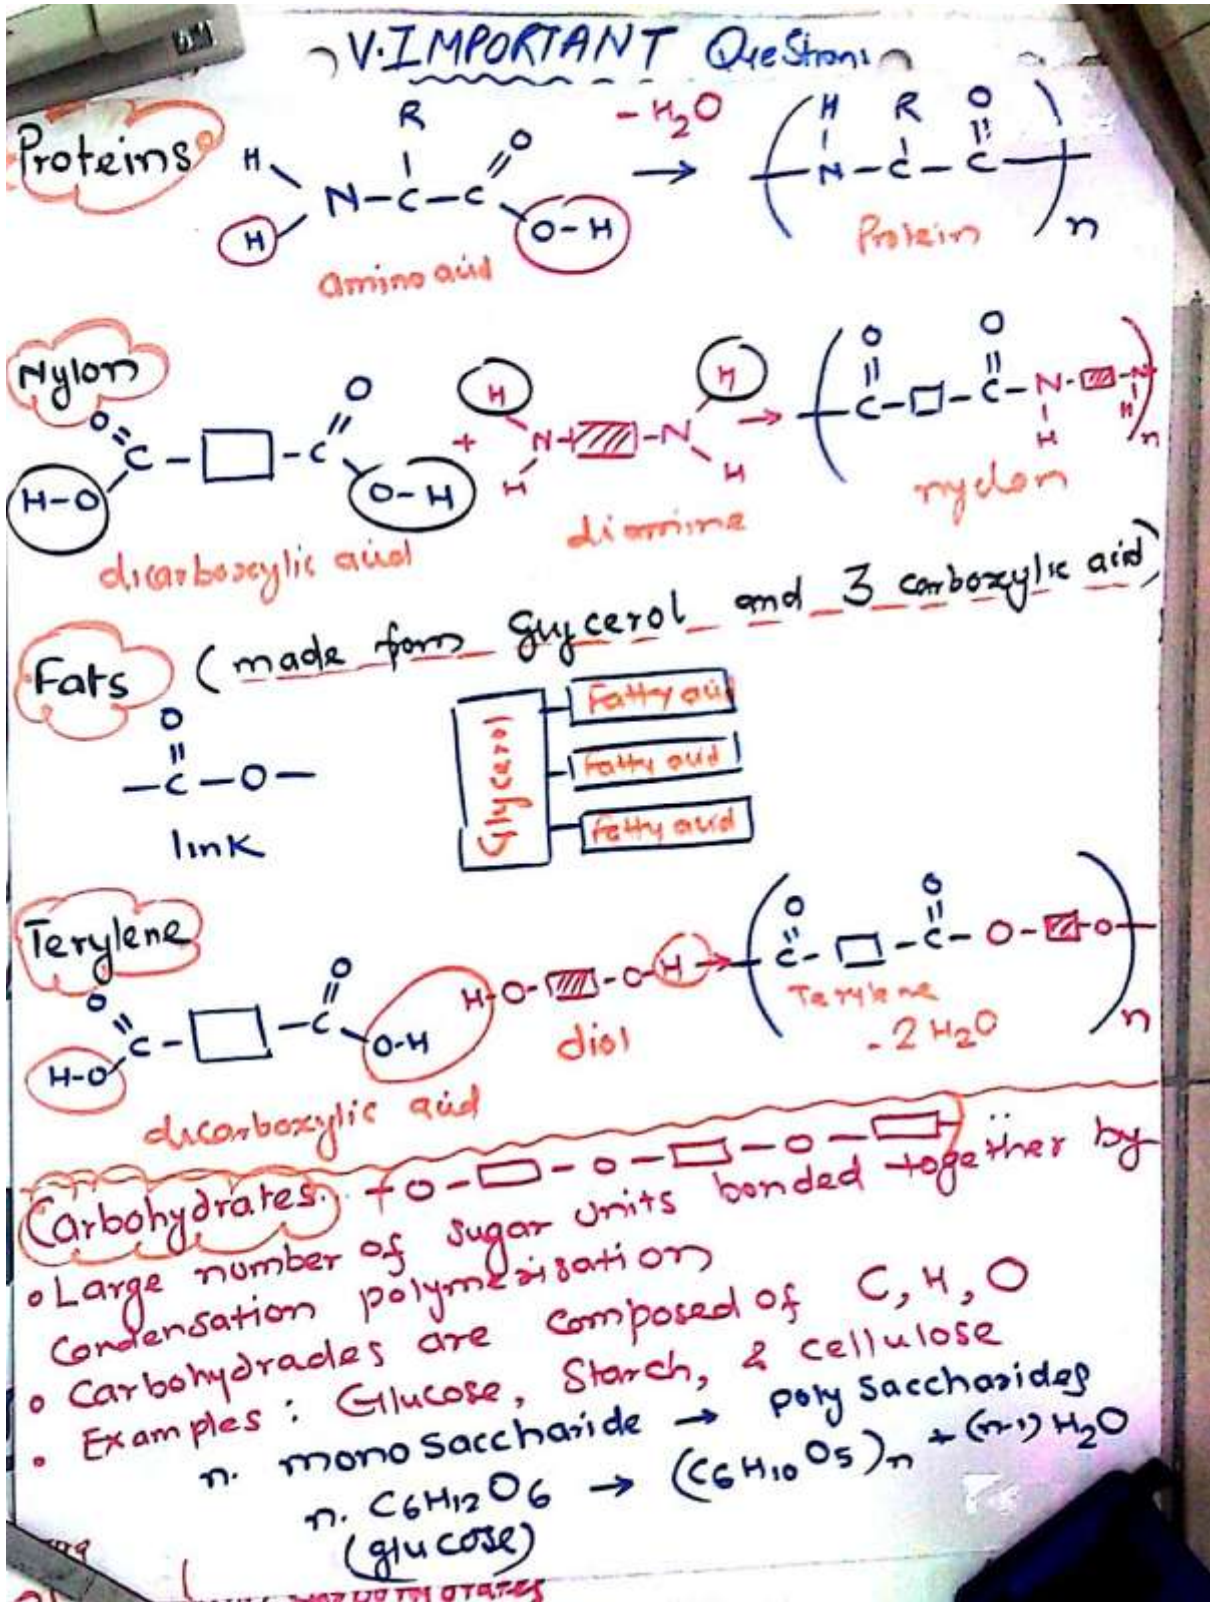 V.IMPORTANT Questions
Proteins
H
H
N-C-C
R
O
O-H
amino acid
-H2O
→
H R O
-N-C-C-
n
Protein
Nylon
O
C
H-O
C
O
O-H
dicarboxylic acid
+
H
H
N
N
H
H
diamine
→
O O
C - C - N - N
H H
n
nyclon
Fats (made form Glycerol and 3 carboxylic acid)
O
-C-O-
link
Glycerol
Fatty acid
Fatty acid
Fatty acid
Terylene
O
C
H-O
C
O
O-H
dicarboxylic acid
H-O- -O-H
diol
→
O O
C - C - O - O
n
Terylene
- 2 H2O
Carbohydrates. O - O - O
• Large number of sugar units bonded together by
Condensation polymerisation
• Carbohydrades are composed of C, H, O
• Examples: Glucose, Starch, & cellulose
n. monosaccharide → poly saccharides
n. C6H12O6 → (C6H10O5)n + (n-1) H2O
(glucose)